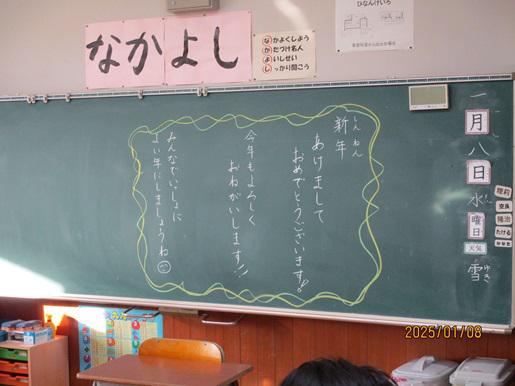 なかよし
なかよくしよう
かたづけ名人
よいしせい
しっかり聞こう
ひなんけいろ
しんねん
新年
あけまして
おめでとうございます!
今年もよろしく
おねがいします!!
みんなでいっしょに
よい年にしましょうね
一月八日
水曜日
天気
雪
ゆき
2025/01/08